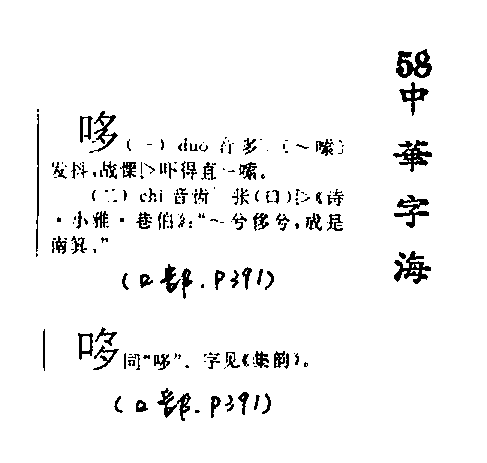 58
中華字海
哆 (一) duo 音多.〔～嗦〕
发抖,战慄▷吓得直～嗦.
(二) chi 音齿 张(口)▷《诗
·小雅·巷伯》:“～兮侈兮,成是
南箕.”
(口部.P391)
哆 同“哆”. 字见《集韵》。
(口部.P391)